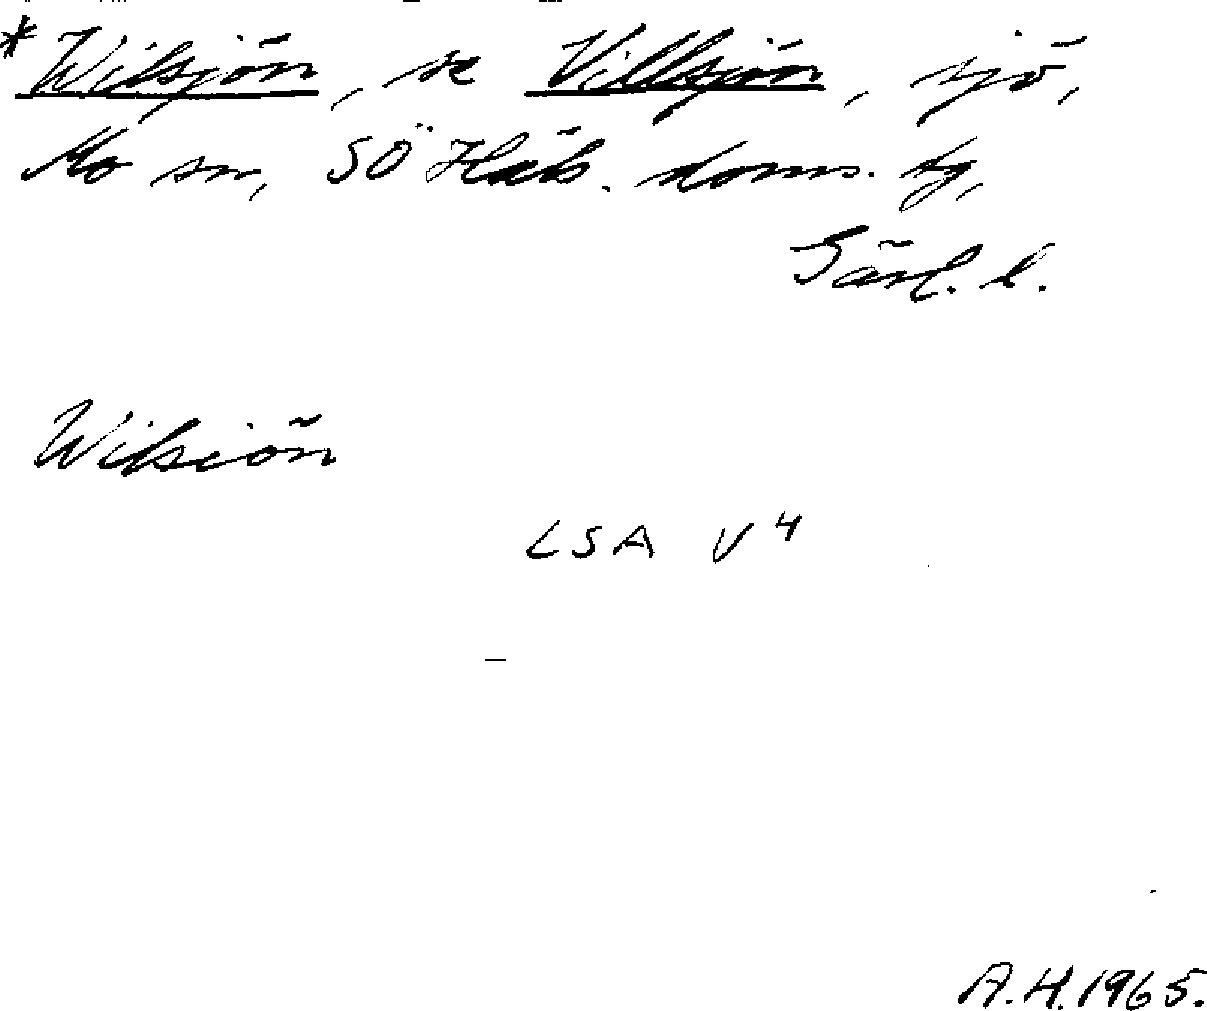 *Wilsjön, se Villsjön, sjö,
Mo sn, SÖ Häls. doms. tg,
Gävl. l.
Wilsiön
LSA V 4
A.H. 1965.